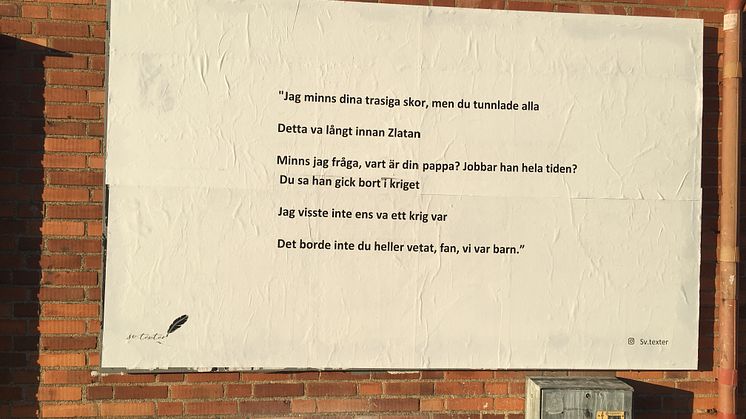 "Jag minns dina trasiga skor, men du tunnlade alla
Detta va långt innan Zlatan
Minns jag fråga, vart är din pappa? Jobbar han hela tiden?
Du sa han gick bort i kriget
Jag visste inte ens va ett krig var
Det borde inte du heller vetat, fan, vi var barn.”
sv.texter
Sv.texter